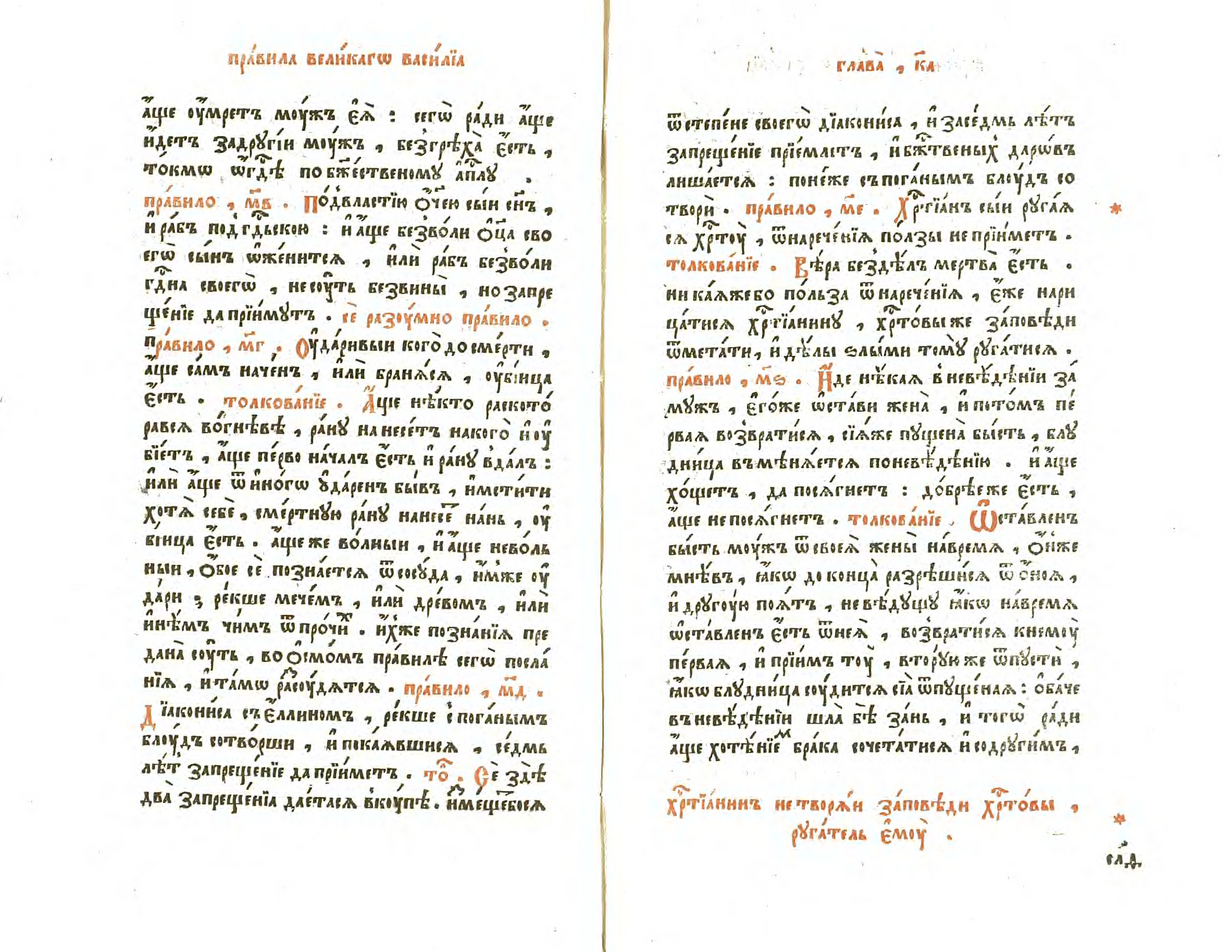 пра́вила вели́кагѡ васи́лїа
а҆́ще оу҆́мретъ моу́жъ є҆ѧ̀ : сегѡ̀ ра́ди а҆́ще
и҆́детъ задрꙋгі́и мо́ужъ , безгрѣха̀ є҆́сть ,
то́кмѡ ѡ҆гдѣ̀ побжⷭ҇ественомꙋ а҆пⷭ҇лꙋ .
пра́вило , м҃в . По́двластїю ѻ҆́ч҃ею сы́и сн҃ъ ,
и҆ра́бъ подгдⷭ҇ьскою : и҆а҆́ще безво́ли ѻ҆ц҃а сво
егѡ̀ сы́нъ ѡ҆же́нитсѧ , и҆лѝ ра́бъ безво́ли
гдⷭ҇на своегѡ̀ , несоу́ть безвины̀ , нозапре
ще́нїе дапрїи́мꙋтъ . сѐ разоу́мно пра́вило .
пра́вило , м҃г . Оу҆да́ривыи кого̀ досме́рти ,
а҆́ще са́мъ наче́нъ , и҆лѝ бранѧ́сѧ , оу҆бі́ица
є҆́сть . толкова́нїе . А҆́ще нѣ́кто раското́
равсѧ во́гнѣвѣ , ра́нꙋ нанесе́тъ накого̀ и҆оу҆
бїе́тъ , а҆́ще пе́рво нача́лъ є҆́сть и҆ ра́нꙋ вда́лъ :
и҆лѝ а҆́ще ѿ и҆но́гѡ ᲂу҆да́ренъ бы́въ , и҆мсти́ти
хотѧ̀ себѐ , сме́ртнꙋю ра́нꙋ нанесѐ на́нь , оу҆
бі́ица є҆́сть . а҆́щеже во́лныи , и҆а҆́ще нево́ль
ныи , ѻ҆бое сѐ позна́етсѧ ѿсосꙋ́да , и҆́мже оу҆
да́ри ; ре́кше мече́мъ , и҆лѝ дре́вомъ , и҆лѝ
и҆нѣ́мъ чи́мъ ѿпро́чиⷯ . и҆́хже позна́нїѧ пре
дана̀ соу́ть , воѻ҆смо́мъ пра́вилѣ сегѡ̀ посла́
нїѧ , и҆та́мѡ разсоу́дѧтсѧ . пра́вило , м҃д .
Дїакони́са съе҆́ллиномъ , ре́кше с̾пога́нымъ
блоу́дъ сотво́рши , и҆пока́ѧвшисѧ , се́дмь
лѣ́тъ запреще́нїе дапрїи́метъ . то́ . Сѐ здѣ̀
два̀ запреще́нїа дае́тасѧ вкоу́пѣ . и҆змеще́босѧ
глава̀ , к҃а
ѿстепе́не своегѡ̀ дїакони́са , и҆ засе́дмь лѣ́тъ
запреще́нїе прїе́млетъ , и҆бжⷭ҇твеныхъ даро́въ
лиша́етсѧ : поне́же съпога́нымъ блоу́дъ со
творѝ . пра́вило , м҃е . Хрⷭ҇тїа́нъ сы́и рꙋга́ѧ
сѧ хрⷭ҇тоу̀ , ѿнарече́нїѧ по́лзы непрїи́метъ .
толкова́нїе . Вѣ́ра бездѣ́лъ мертва̀ є҆́сть .
ника́ѧжебо по́льза ѿнарече́нїѧ , є҆́же нари
ца́тисѧ хрⷭ҇тїа́нинꙋ , хрⷭ҇то́выже за́повѣди
ѿмета́ти , и҆дѣ́лы ѕлы́ми томꙋ̀ рꙋга́тисѧ .
пра́вило , м҃ѕ . И҆́де нѣ́каѧ вневѣ́дѣнїи за́
мꙋжъ , є҆го́же ѡ҆ста́ви жена̀ , и҆пото́мъ пе́
рваѧ возврати́сѧ , сїѧ́же пꙋщена̀ бы́сть , блꙋ
дни́ца въмѣнѧ́етсѧ поневѣ́дѣнїю . и҆а҆́ще
хо́щетъ , да посѧ́гнетъ : до́брѣеже є҆́сть ,
а҆́ще непосѧ́гнетъ . толкова́нїе . Ѿста́вленъ
бы́сть моу́жъ ѿсвоеѧ̀ жены̀ на́времѧ , ѻ҆́нже
мнѣ́въ , ꙗ҆́кѡ доконца̀ разрѣши́сѧ ѿ ѻ҆́ноѧ ,
и҆дрꙋго́ую поѧ́тъ , невѣ́дꙋщꙋ ꙗ҆́кѡ на́времѧ
ѡ҆ста́вленъ є҆́сть ѿнеѧ̀ , возврати́сѧ кнемоу̀
пе́рваѧ , и҆прїи́мъ тоу̀ , втору́юже ѿпꙋстѝ ,
ꙗ҆́кѡ блꙋдни́ца соу́дитсѧ сїа̀ ѿпꙋще́наѧ : ѻ҆ба́че
въневѣ́дѣнїи шла̀ бѣ̀ за́нь , и҆ тогѡ̀ ра́ди
а҆́ще хотѣ́нїемⷨ бра́ка сочета́тисѧ и҆содрꙋги́мъ ,
*
хрⷭ҇тїа́нинъ нетворѧ́и за́повѣди хрⷭ҇то́вы ,
рꙋга́тель є҆моу̀ .
*
сла́дⷣ